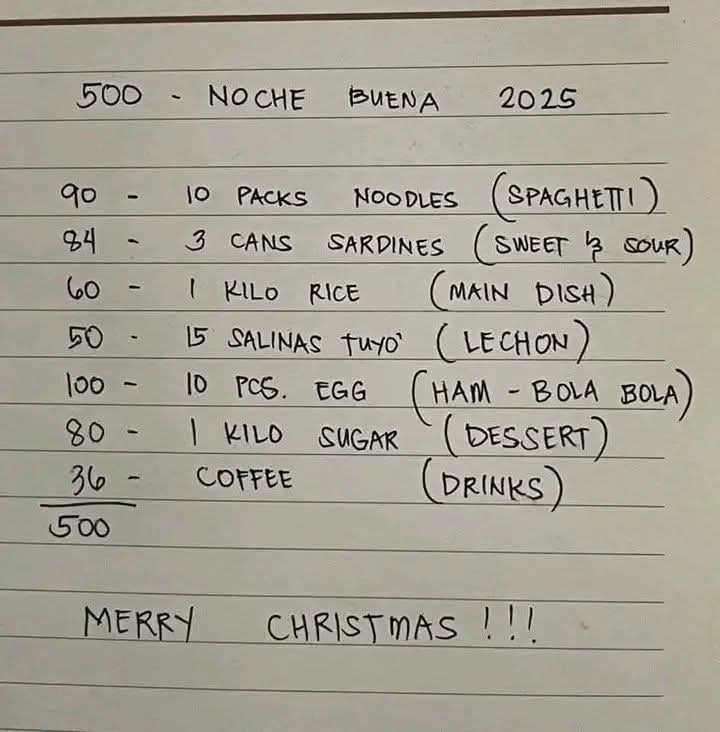 500 - NOCHE BUENA 2025
90 - 10 PACKS NOODLES (SPAGHETTI)
84 - 3 CANS SARDINES (SWEET & SOUR)
60 - 1 KILO RICE (MAIN DISH)
50 - 15 SALINAS TUYO' (LECHON)
100 - 10 PCS. EGG (HAM - BOLA BOLA)
80 - 1 KILO SUGAR (DESSERT)
36 - COFFEE (DRINKS)
500
MERRY CHRISTMAS !!!